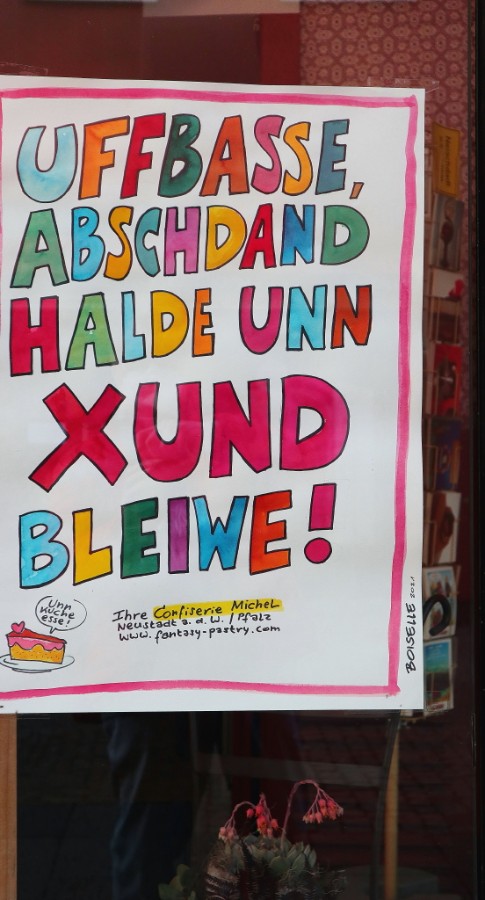 UFFBASSE,
ABSCHDAND
HALDE UNN
XUND
BLEIWE!
Unn
Kuche
esse!
Ihre Confiserie Michel
Neustadt a. d. W. / Pfalz
www.fantasy-pastry.com
BOISELLE 2021